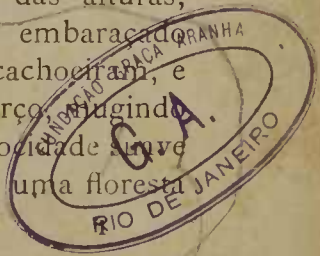 das alturas,
embaraçado
cachoeiram, e
mugindo
ocidade suave
uma floresta
FUNDAÇÃO GRAÇA ARANHA
G. A.
RIO DE JANEIRO